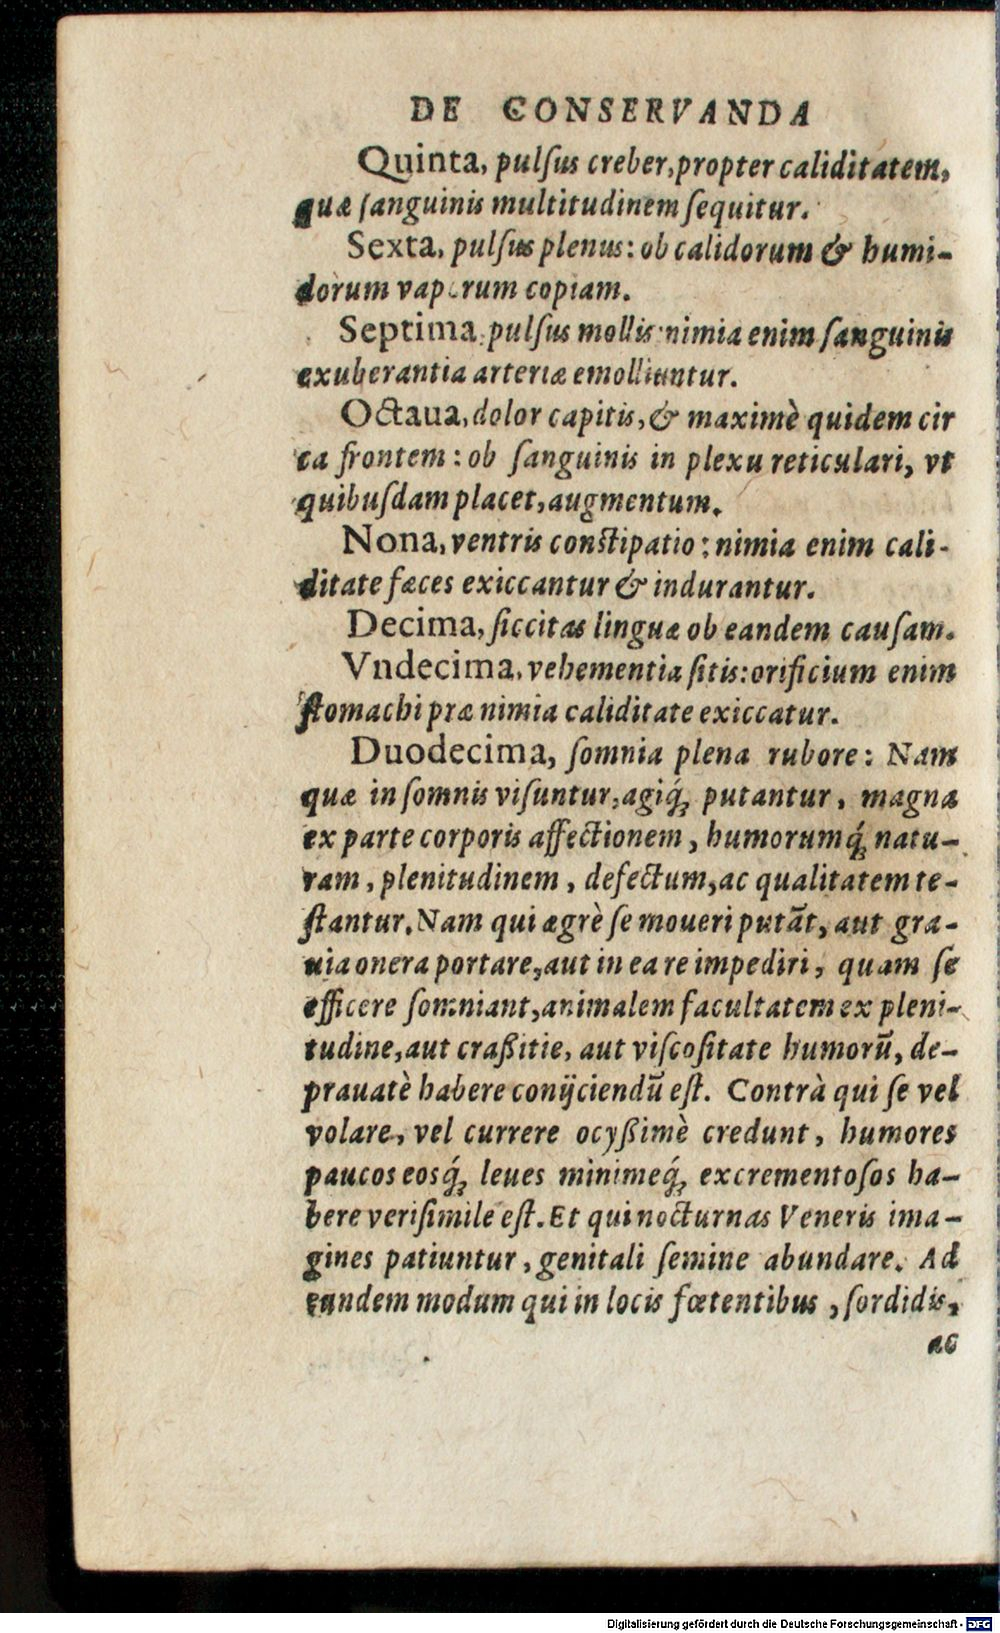 DE CONSERVANDA
Quinta, pulſus creber, propter caliditatem,
quæ ſanguinis multitudinem ſequitur.
Sexta, pulſus plenus: ob calidorum & humi-
dorum vaporum copiam.
Septima, pulſus mollis: nimia enim ſanguinis
exuberantia arteriæ emolliuntur.
Octaua, dolor capitis, & maximè quidem cir
ca frontem: ob ſanguinis in plexu reticulari, vt
quibuſdam placet, augmentum.
Nona, ventris conſtipatio: nimia enim cali-
ditate fæces exiccantur & indurantur.
Decima, ſiccitas linguæ ob eandem cauſam.
Vndecima, vehementia ſitis: orificium enim
ſtomachi præ nimia caliditate exiccatur.
Duodecima, ſomnia plena rubore: Nam
quæ in ſomnis viſuntur, agiq́; putantur, magna
ex parte corporis affectionem, humorumq́; natu-
ram, plenitudinem, defectum, ac qualitatem te-
ſtantur. Nam qui ægrè ſe moueri putāt, aut gra-
uia onera portare, aut in ea re impediri, quam ſe
efficere ſomniant, animalem facultatem ex pleni-
tudine, aut craßitie, aut viſcoſitate humorū, de-
prauatè habere conijciendū eſt. Contrà qui ſe vel
volare, vel currere ocyßimè credunt, humores
paucos eosq́; leues minimeq́; excrementoſos ha-
bere veriſimile eſt. Et qui nocturnas Veneris ima-
gines patiuntur, genitali ſemine abundare. Ad
eundem modum qui in locis fœtentibus, ſordidis,
ac
Digitalisierung gefördert durch die Deutsche Forschungsgemeinschaft - DFG